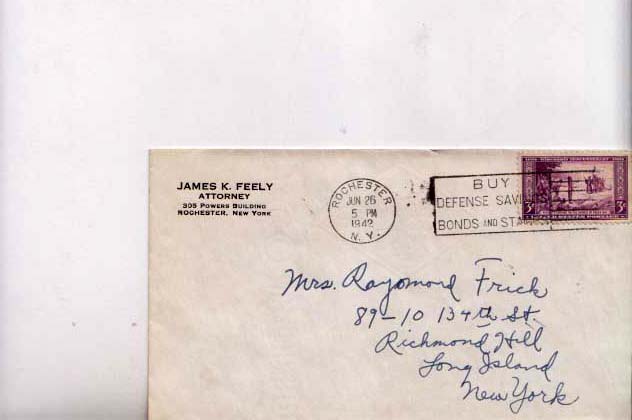 JAMES K. FEELY
ATTORNEY
305 POWERS BUILDING
ROCHESTER, NEW YORK
ROCHESTER
JUN 26
5 PM
1942
N.Y.
BUY
DEFENSE SAVI
BONDS AND STA
3¢ 3¢
Mrs. Raymond Frick
89-10 134th St.
Richmond Hill
Long Island
New York